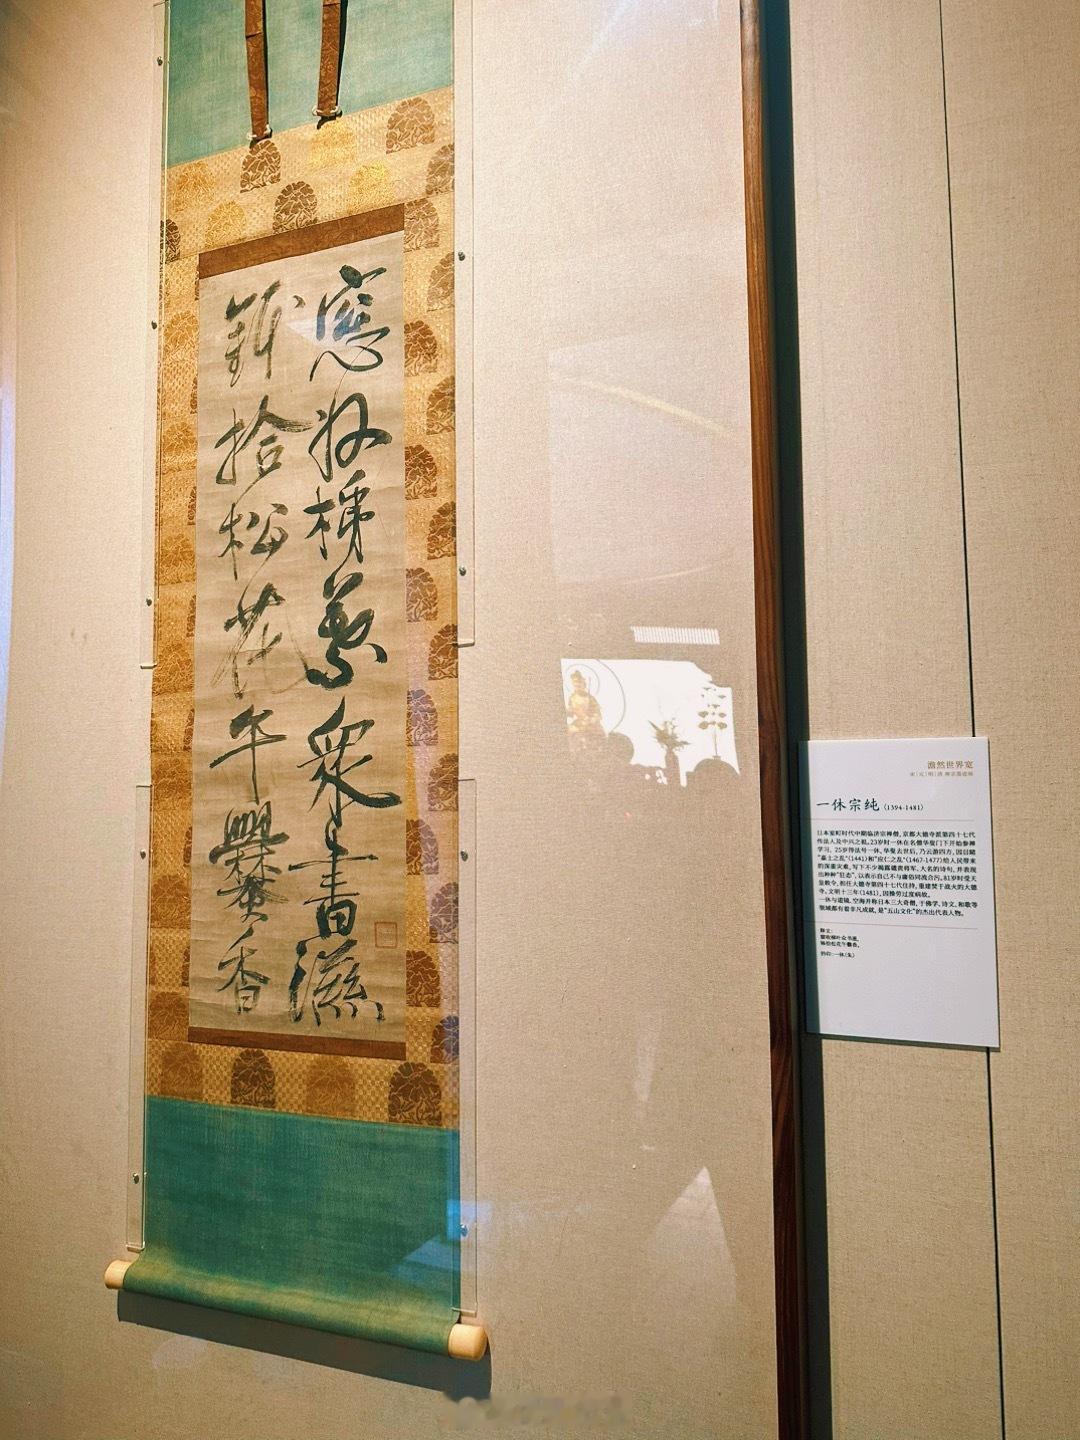 窓收柹葉衆書滋
鉢拾松花午爨香
澹然世界宽
一休宗纯（1394-1481）
日本室町时代中期临济宗禅僧，京都大德寺派第四十七代
传法人及中兴之祖。23岁时一休在名僧华叟门下开始参禅
学习，25岁得法号一休。华叟去世后，乃云游四方，因目睹
“嘉土之乱”（1441）和“应仁之乱”（1467-1477）给人民带来
的深重灾难，写下不少揭露谴责将军、大名的诗句，并表现
出种种“狂态”，以表示自己不与庸俗同流合污。81岁时受天
皇敕令，担任大德寺第四十七代住持，重建焚于战火的大德
寺。文明十三年（1481），因操劳过度病故。
一休与道镜、空海并称日本三大奇僧，于佛学、诗文、和歌等
领域都有着非凡成就，是“五山文化”的杰出代表人物。
释文：
钵拾松花午爨香。
钤印：一休（朱）